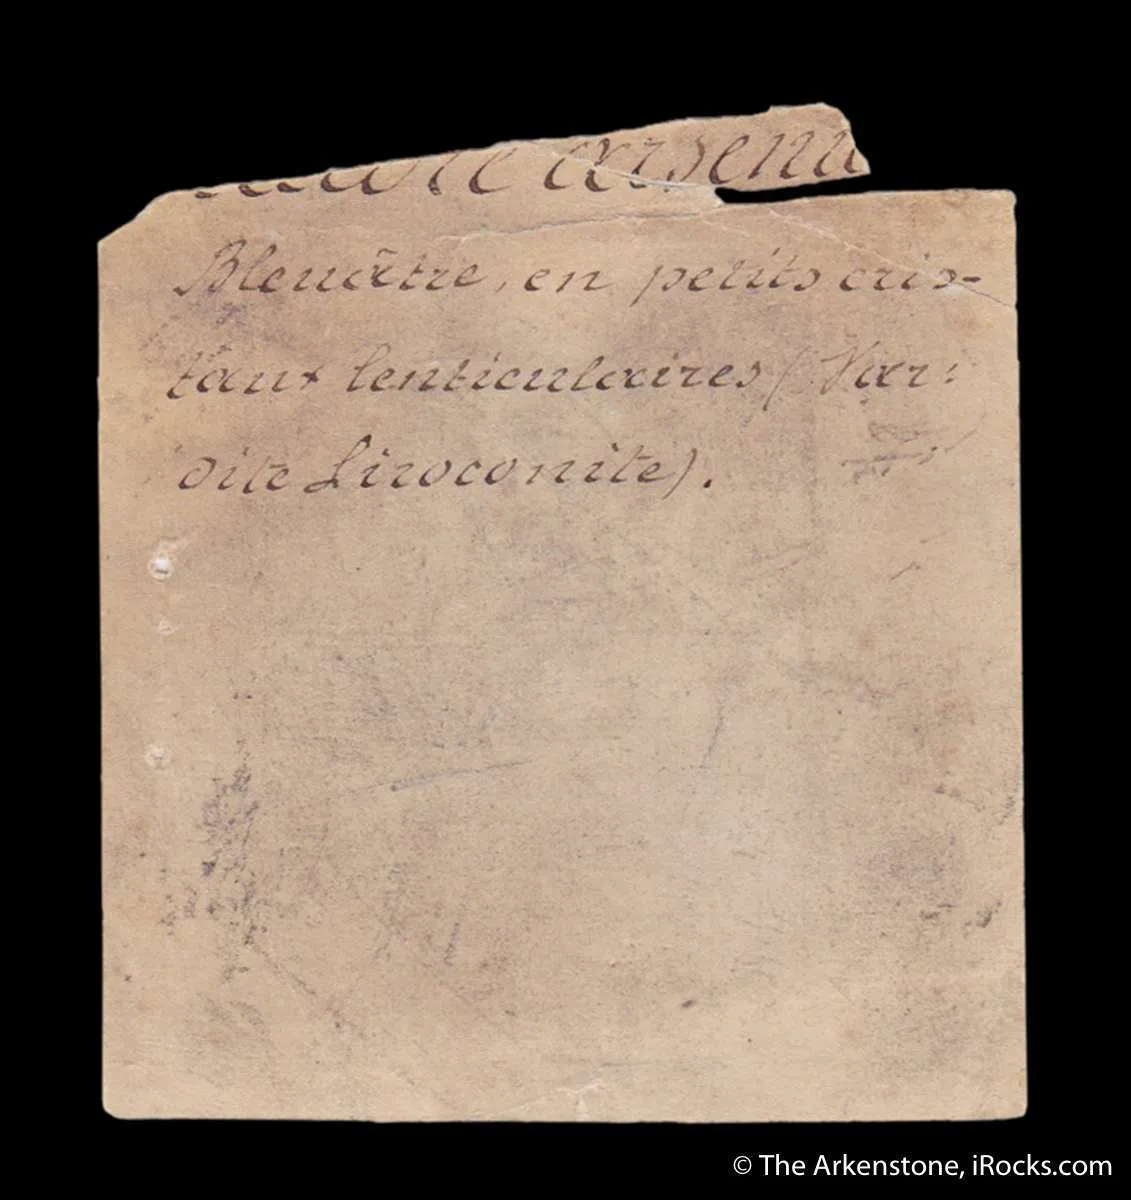 arsenu
Bleuâtre, en petits cris-
taux lenticulaires (Var:
dite Liroconite).
© The Arkenstone, iRocks.com